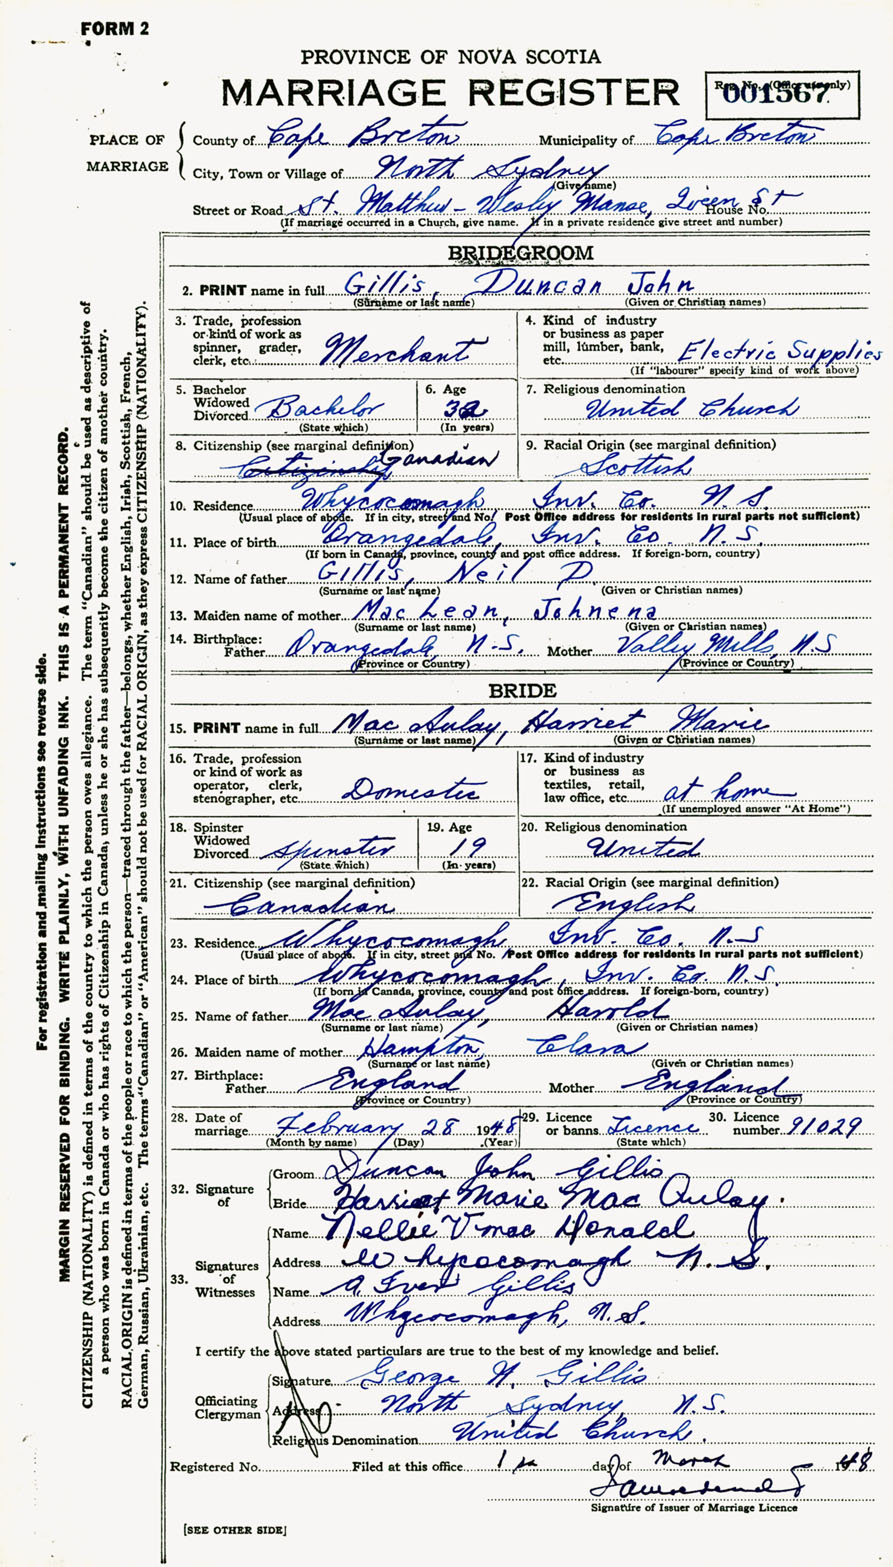 FORM 2
PROVINCE OF NOVA SCOTIA
MARRIAGE REGISTER
Reg. No. (Office use only)
001567
PLACE OF MARRIAGE
County of Cape Breton Municipality of Cape Breton
City, Town or Village of North Sydney
(Give name)
Street or Road St. Matthew - Wesley Manse, Queen St House No.
(If marriage occurred in a Church, give name. If in a private residence give street and number)
BRIDEGROOM
2. PRINT name in full Gillis, Duncan John
(Surname or last name) (Given or Christian names)
3. Trade, profession or kind of work as spinner, grader, clerk, etc. Merchant
4. Kind of industry or business as paper mill, lumber, bank, etc. Electric Supplies
(If "labourer" specify kind of work above)
5. Bachelor Widowed Divorced Bachelor
(State which)
6. Age 32
(In years)
7. Religious denomination
United Church
8. Citizenship (see marginal definition)
Citizenship Canadian
9. Racial Origin (see marginal definition)
Scottish
10. Residence Whycocomagh Inv. Co. N.S.
(Usual place of abode. If in city, street and No. Post Office address for residents in rural parts not sufficient)
11. Place of birth Orangedale, Inv. Co N.S.
(If born in Canada, province, county and post office address. If foreign-born, country)
12. Name of father Gillis, Neil D.
(Surname or last name) (Given or Christian names)
13. Maiden name of mother MacLean, Johnena
(Surname or last name) (Given or Christian names)
14. Birthplace:
Father Orangedale, N.S. Mother Valley Mills, N.S
(Province or Country) (Province or Country)
BRIDE
15. PRINT name in full Mac Aulay, Harriet Marie
(Surname or last name) (Given or Christian names)
16. Trade, profession or kind of work as operator, clerk, stenographer, etc. Domestic
17. Kind of industry or business as textiles, retail, law office, etc. at home
(If unemployed answer "At Home")
18. Spinster Widowed Divorced Spinster
(State which)
19. Age 19
(In years)
20. Religious denomination
United
21. Citizenship (see marginal definition)
Canadian
22. Racial Origin (see marginal definition)
English
23. Residence Whycocomagh Inv. Co. N.S
(Usual place of abode. If in city, street and No. Post Office address for residents in rural parts not sufficient)
24. Place of birth Whycocomagh, Inv. Co. N.S.
(If born in Canada, province, county and post office address. If foreign-born, country)
25. Name of father Mac Aulay, Harold
(Surname or last name) (Given or Christian names)
26. Maiden name of mother Hampton, Clara
(Surname or last name) (Given or Christian names)
27. Birthplace:
Father England Mother England
(Province or Country) (Province or Country)
28. Date of marriage February 28 1948
(Month by name) (Day) (Year)
29. Licence or banns Licence
(State which)
30. Licence number 91029
32. Signature of
Groom Duncan John Gillis
Bride Harriet Marie Mac Aulay.
33. Signatures of Witnesses
Name Nellie V. Mac Donald
Address Whycocomagh N.S.
Name A. Iver Gillis
Address Whycocomagh, N.S.
I certify the above stated particulars are true to the best of my knowledge and belief.
Officiating Clergyman
Signature George W. Gillis
Address North Sydney, N.S.
Religious Denomination United Church.
Registered No. Filed at this office 1 day of March 1948
Signature of Issuer of Marriage Licence
[SEE OTHER SIDE]
For registration and mailing instructions see reverse side.
MARGIN RESERVED FOR BINDING. WRITE PLAINLY, WITH UNFADING INK. THIS IS A PERMANENT RECORD.
CITIZENSHIP (NATIONALITY) is defined in terms of the country to which the person owes allegiance. The term "Canadian" should be used as descriptive of
a person who was born in Canada or who has rights of Citizenship in Canada, unless he or she has subsequently become the citizen of another country.
RACIAL ORIGIN is defined in terms of the people or race to which the person—traced through the father—belongs, whether English, Irish, Scottish, French,
German, Russian, Ukrainian, etc. The terms "Canadian" or "American" should not be used for RACIAL ORIGIN, as they express CITIZENSHIP (NATIONALITY).